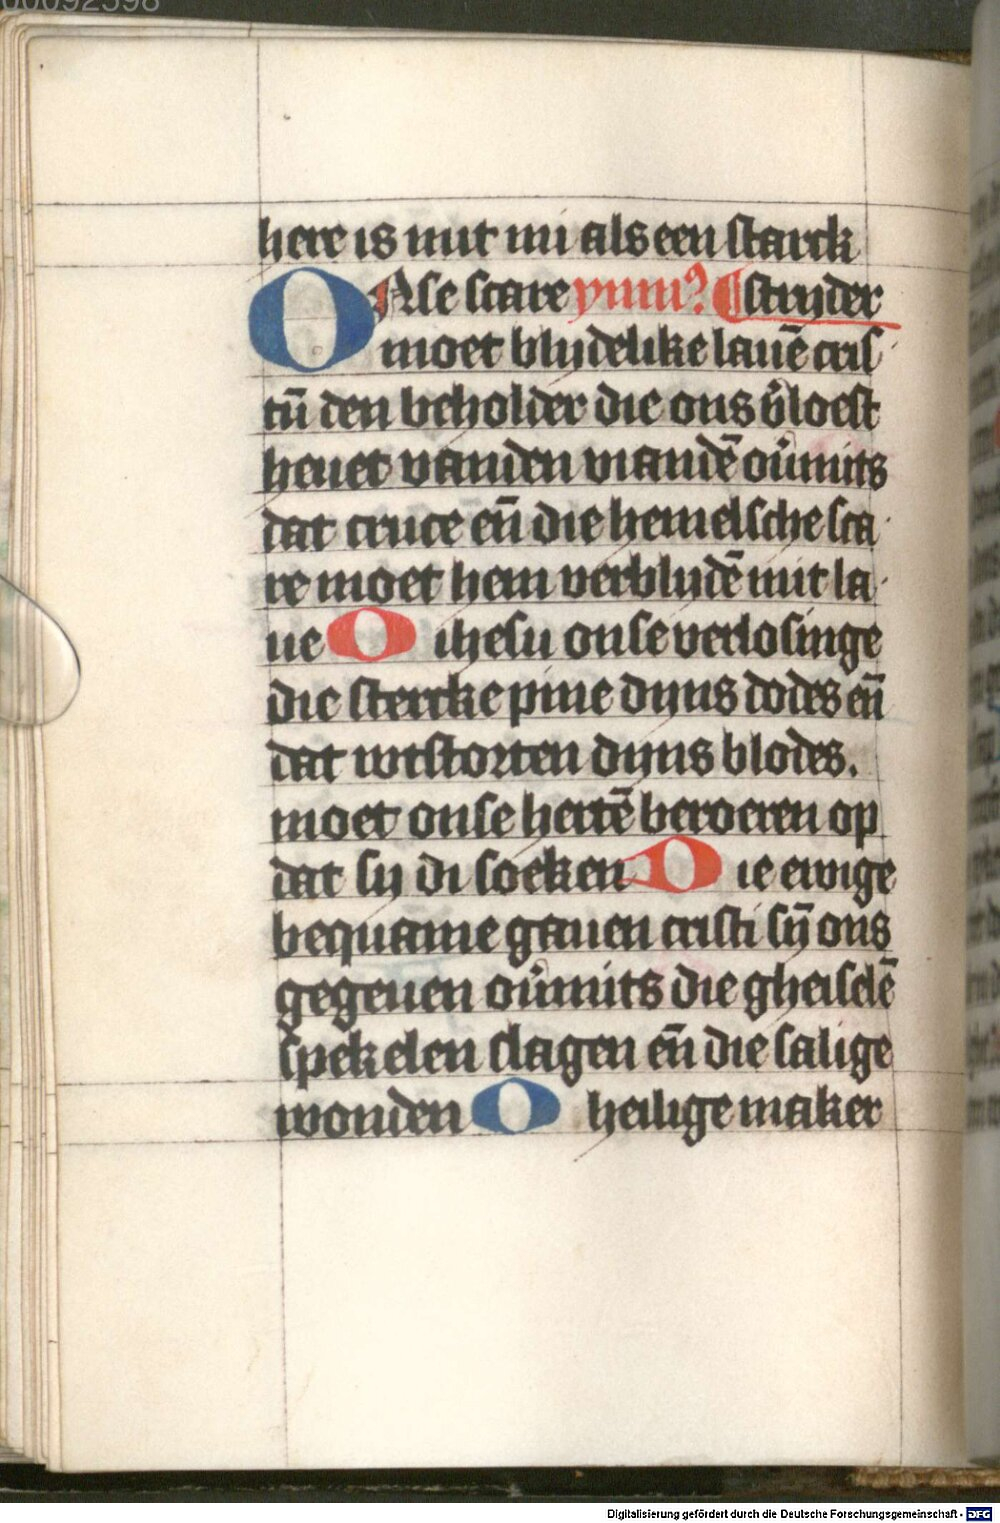 00092598
here is mit mi als een starck
ONse scare ymn9 ¶ stryder
moet blydelike lauē cris
tū den beholder die ons v̾loest
heuet vanden viandē ou̾mits
dat cruce eñ die hemelsche sca
re moet hem verblydē mit la
ue O ihesu onse verlosinge
die stercke pine dyns dodes eñ
dat wtstorten dyns blodes.
moet onse hertē beroeren op
dat sy di soeken Die ewige
bequame gauen cristi sȳ ons
gegeuen ou̾mits die gheiselē
spekelen slagen eñ die salige
wonden O heilige maker
Digitalisierung gefördert durch die Deutsche Forschungsgemeinschaft - DFG